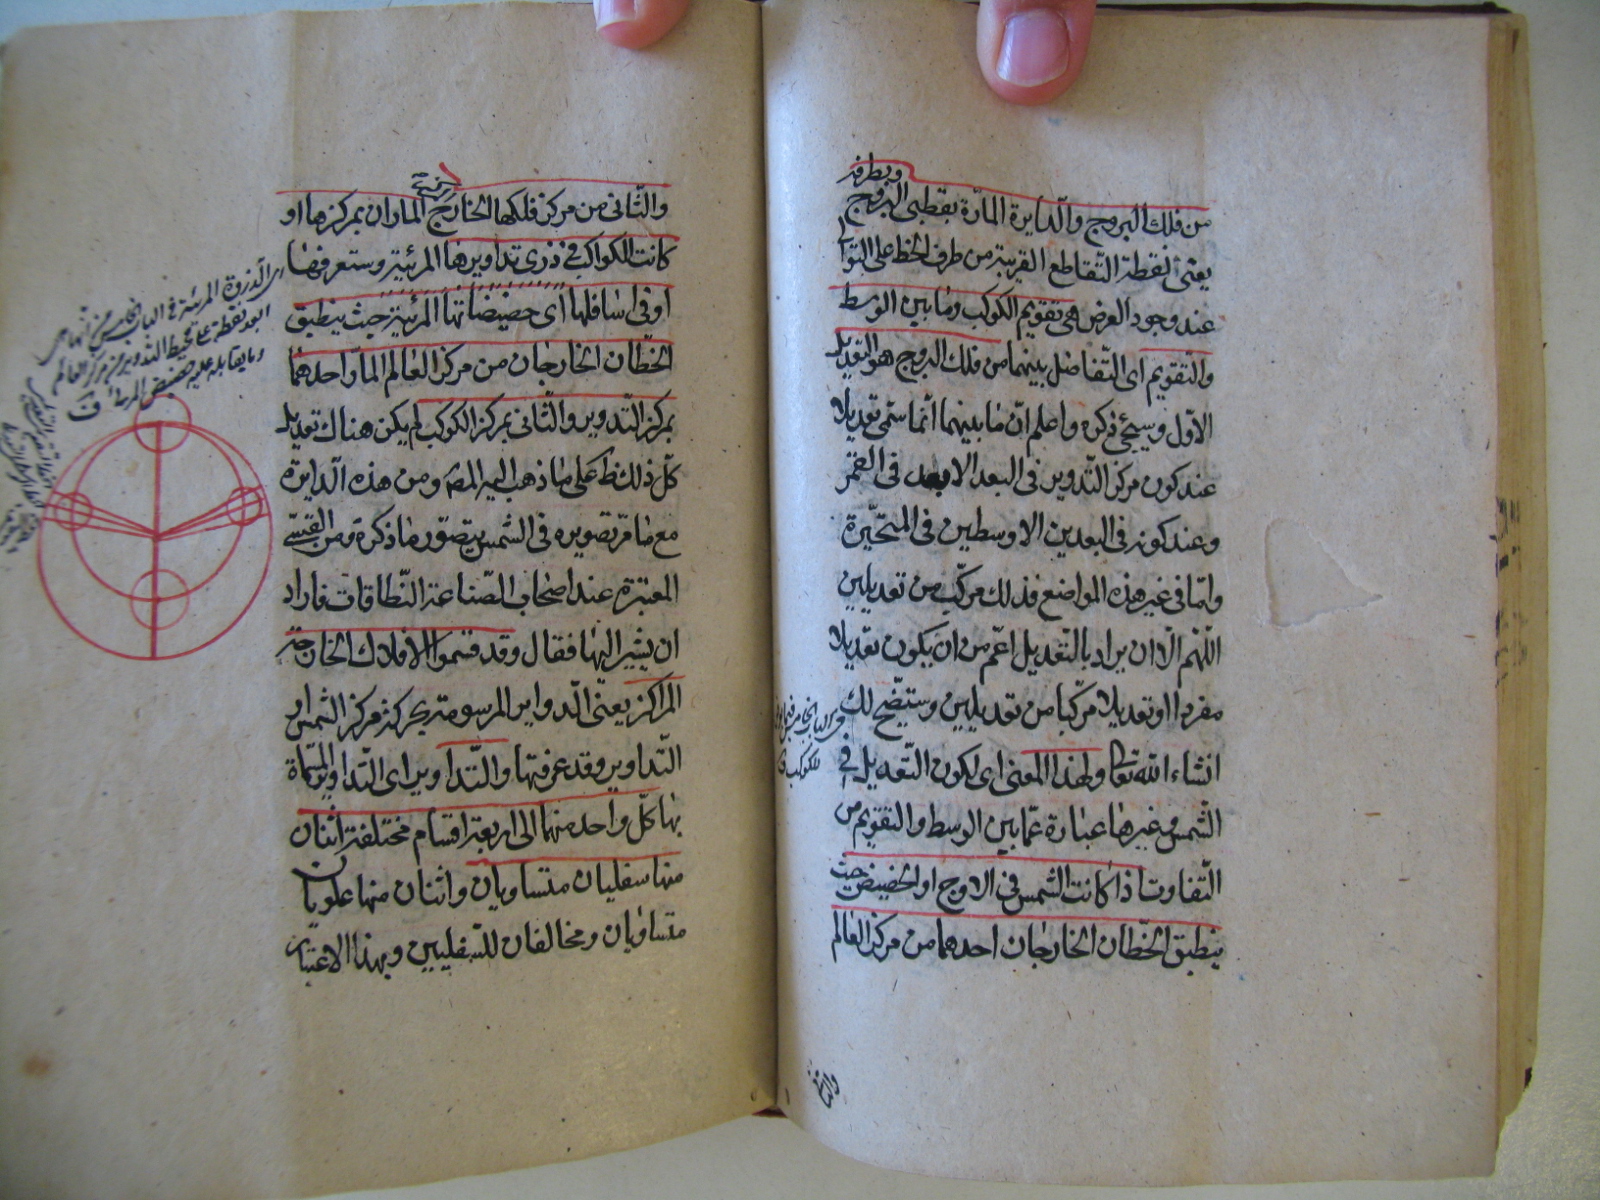 وبطرفه
من فلك البروج والدايرة المارّة بقطبى البروج
يعنى نقطة التّقاطع القريبة من طرف الخط على التوالى
عند وجود العرض هى تقويم الكوكب وما بين الوسط
والتّقويم اى التّفاضل بينهما من فلك البروج هو التعديل
الاوّل وسيجئ ذكره واعلم انّ ما بينهما انّما سمّى تعديلا
عند كون مركز التّدوير فى البعد الابعد فى القمر
وعند كونه فى البعدين الاوسطين فى المتحيّرة
وامّا فى غير هذه المواضع فذلك مركّب من تعديلين
اللّهمّ الّا ان يراد بالتّعديل اعّم من ان يكون تعديلا
مفردا او تعديلا مركّبا من تعديلين وستيضّح لك
انشاء الله تعالى ولهذا المعنى اى لكون التّعديل فى
الشّمس وغيرها عبارة عمّا بين الوسط والتقويم من
التّفاوت اذا كانت الشّمس فى الاوج او الحضيض حيث
ينطبق الخطّان الخارجان احدهما من مركز العالم
والثانى
والثّانى من مركز فلكها الخارج الماران بمركزها او
كانت الكواكب فى ذرى تداويرها المرئيّة وستعرفها
او فى اسافلها اى حضيضاتها المرئيّة حيث ينطبق
الخطّان الخارجان من مركز العالم المارّ احدهما
بمركز التّدوير والثّانى بمركز الكوكب لم يكن هناك تعديل
كلّ ذلك ظ على ما ذهب اليه المص ومن هذه الدايرة
مع ما مرّ تصويره فى الشّمس يتصوّر ما ذكره ومن القسىّ
المعتبرة عند اصحاب الصّناعة النّطاقات فاراد
ان يشير اليها فقال وقد قسّموا الافلاك الخارجة
المراكز يعنى الدّواير المرسومة بحركة مركز الشّمس او
التّداوير وقد عرفتها والتّداوير اى التّداوير المسمّاة
بها كلّ واحد منهما الى اربعة اقسام مختلفة اثنان
منها سفليان متساويان واثنان منها علويان
متساويان ومخالفان للسّفليين وبهذا الاعتبار
اى الذروة المرئية فى الباب الخامس من انها هى
ابعد نقطة على محيط التدوير من مركز العالم
وما يقابله عليه حضيض المرئى